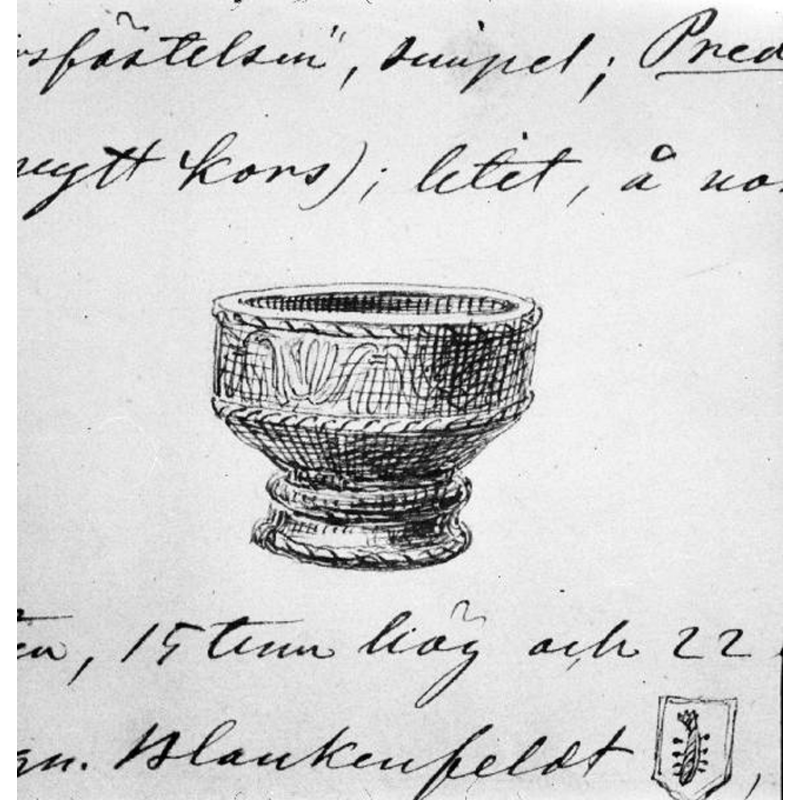 fästelsen", simpel; Pred
nytt kors); litet, å
15 tum hög och 22
Blankenfeldt ,